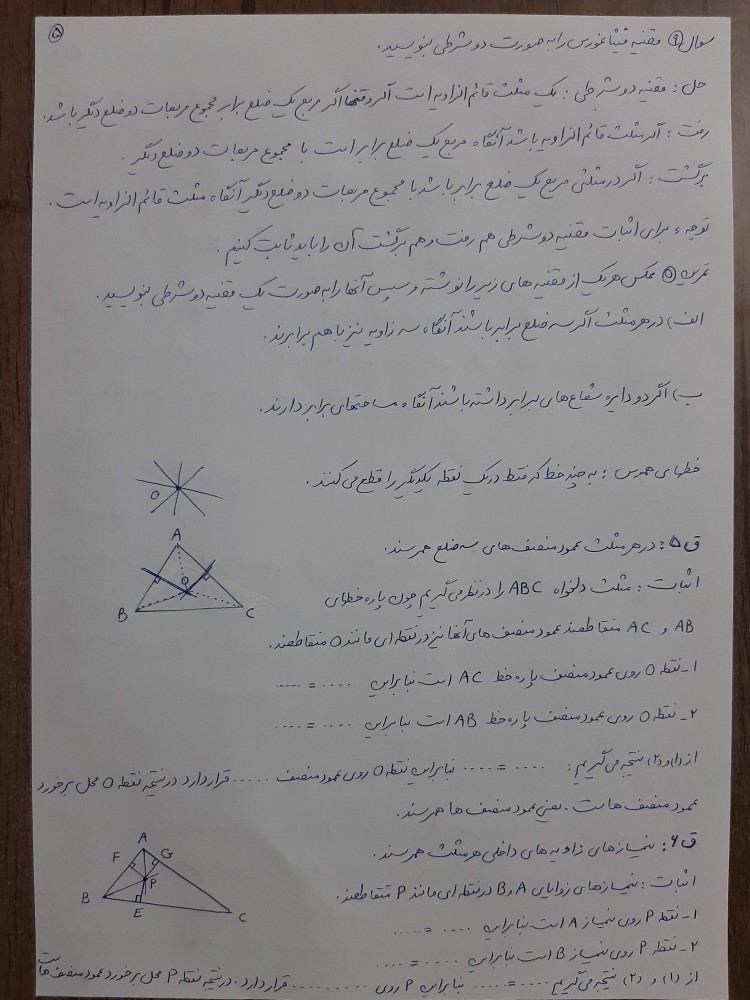 ۵
سوال ۹) قضیه فیثاغورس را به صورت دو شرطی بنویسید.
حل: قضیه دو شرطی: یک مثلث قائم الزاویه است اگر و تنها اگر مربع یک ضلع برابر مجموع مربعات دو ضلع دیگر باشد.
رفت: اگر مثلث قائم الزاویه باشد آنگاه مربع یک ضلع برابر است با مجموع مربعات دو ضلع دیگر.
برگشت: اگر در مثلثی مربع یک ضلع برابر باشد با مجموع مربعات دو ضلع دیگر آنگاه مثلث قائم الزاویه است.
توجه: برای اثبات قضیه دو شرطی هم رفت و هم برگشت آن را باید ثابت کنیم.
تمرین ۵) عکس هر یک از قضیه های زیر را نوشته و سپس آنها را به صورت یک قضیه دو شرطی بنویسید.
الف) در هر مثلث اگر سه ضلع برابر باشند آنگاه سه زاویه نیز با هم برابرند.
ب) اگر دو دایره شعاع های برابر داشته باشند آنگاه مساحتهای برابر دارند.
خطهای همرس: به چند خط که فقط در یک نقطه یکدیگر را قطع می کنند.
O
ق ۵: در هر مثلث عمود منصف های سه ضلع همرسند.
A
B
C
O
اثبات: مثلث دلخواه ABC را در نظر می گیریم چون پاره خطهای
AB و AC متقاطعند عمود منصف های آنها نیز در نقطه ای مانند O متقاطعند.
۱- نقطه O روی عمود منصف پاره خط AC است بنابراین ..... = .....
۲- نقطه O روی عمود منصف پاره خط AB است بنابراین ..... = .....
از (۱) و (۲) نتیجه می گیریم: ..... = ..... بنابراین نقطه O روی عمود منصف ..... قرار دارد در نتیجه نقطه O محل برخورد
عمود منصف هاست. یعنی عمود منصف ها همرسند.
ق ۶: نیمسازهای زاویه های داخلی هر مثلث همرسند.
A
F
G
P
B
E
C
اثبات: نیمسازهای زوایای A و B در نقطه ای مانند P متقاطعند.
۱- نقطه P روی نیمساز A است بنابراین ..... = .....
۲- نقطه P روی نیمساز B است بنابراین ..... = .....
از (۱) و (۲) نتیجه می گیریم ..... = ..... بنابراین P روی .......... قرار دارد. در نتیجه نقطه P محل برخورد عمود منصف هاست